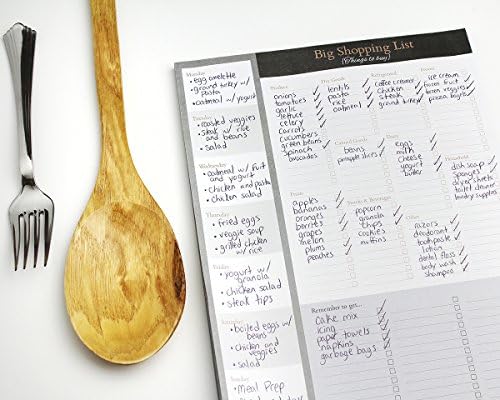 Big Shopping List
(Things to buy)
Monday
• egg omelette
• ground turkey w/
pasta
• oatmeal w/ yogurt
Tuesday
• roasted veggies
• steak w/ rice
and beans
• salad
Wednesday
• oatmeal w/ fruit
and yogurt
• chicken and pasta
• chicken salad
Thursday
• fried eggs
• veggie soup
• grilled chicken
w/ rice
Friday
• yogurt w/
granola
• chicken salad
• steak tips
Saturday
• boiled eggs w/
beans
• chicken and
veggies
• salad
Sunday
• Meal Prep
Produce
onions
tomatoes
garlic
lettuce
celery
carrots
cucumbers
green beans
spinach
avocados
Dry Goods
lentils
pasta
rice
oatmeal
Canned
beans
pineapple slices
Refrigerated
coffee creamer
chicken
steak
ground turkey
Frozen
ice cream
frozen fruit
frozen veggies
pizza bagels
Dairy
eggs
milk
cheese
yogurt
butter
Household
dish soap
sponges
dryer sheets
toilet cleaner
laundry supplies
Fruit
apples
bananas
oranges
berries
grapes
melon
plums
peaches
Snacks & Beverages
popcorn
granola
chips
cookies
muffins
Other
razors
deodorant
toothpaste
lotion
dental floss
body wash
shampoo
Remember to get...
cake mix
icing
paper towels
napkins
garbage bags